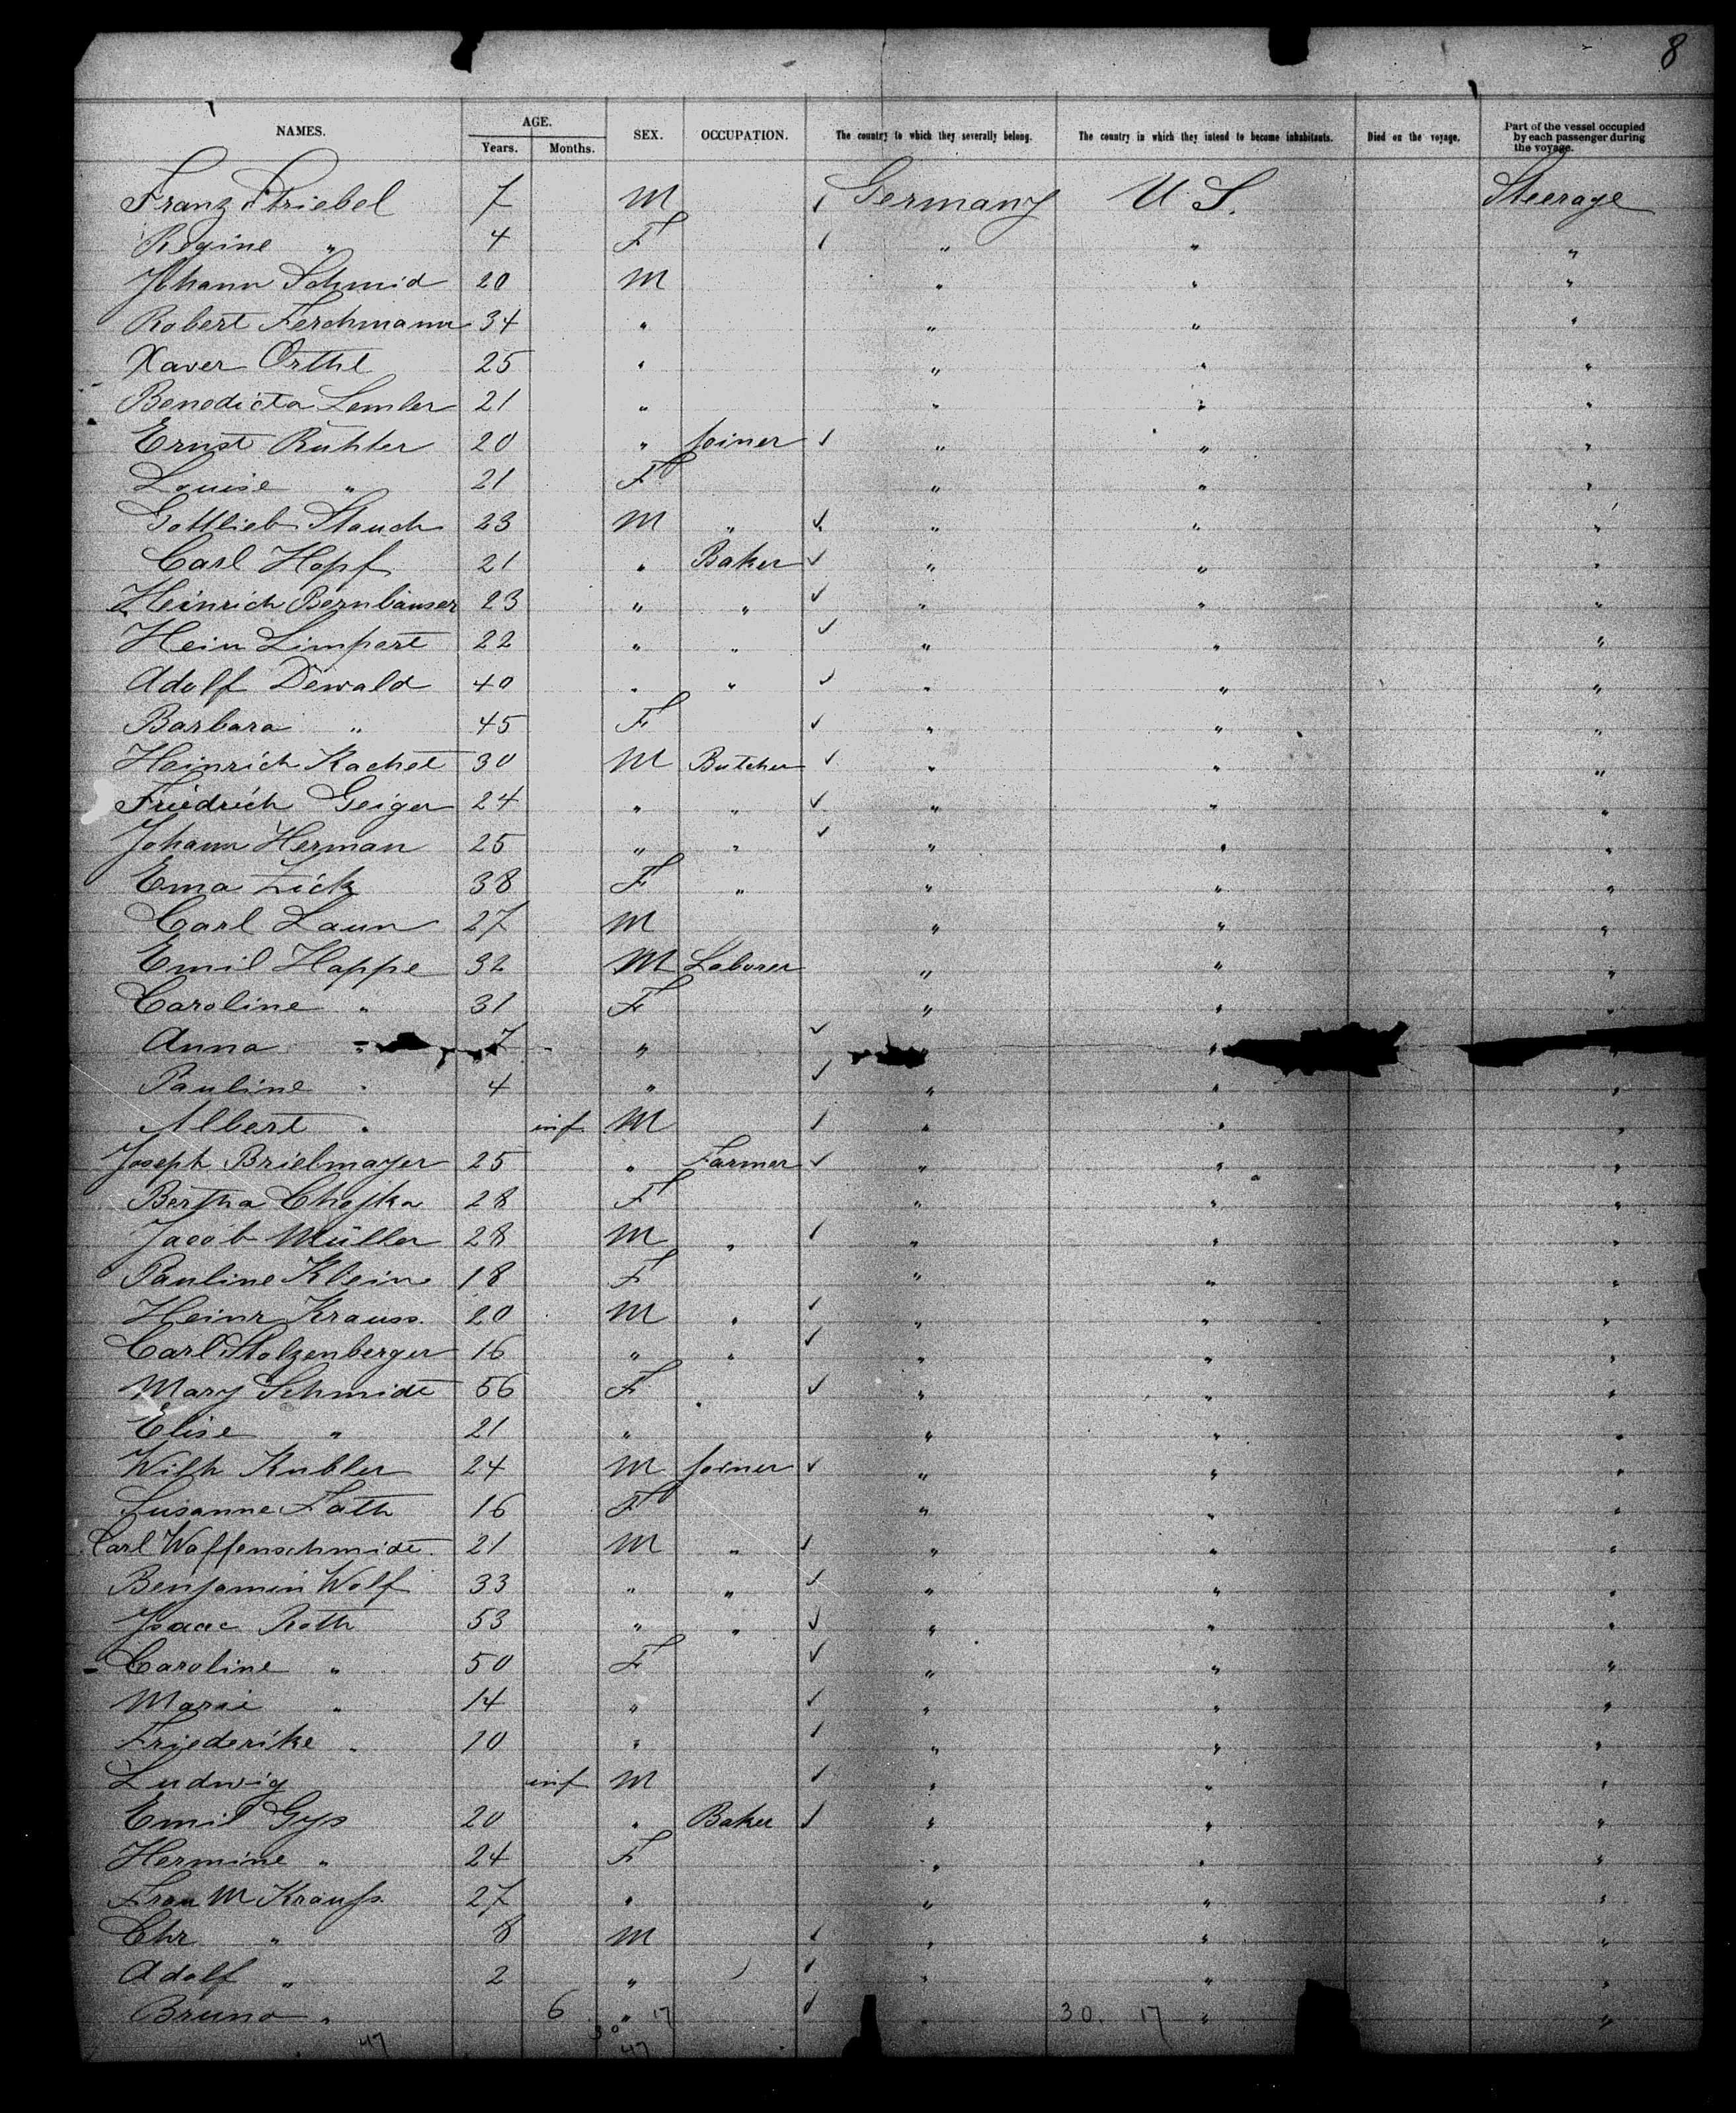 8
NAMES. AGE. Years. Months. SEX. OCCUPATION. The country to which they severally belong. The country in which they intend to become inhabitants. Died on the voyage. Part of the vessel occupied by each passenger during the voyage.
Franz Striebel 7 M Germany U S. Steerage
Regine " 4 F " " "
Johann Schmid 20 M " " "
Robert Ferchmann 34 " " " "
Xaver Orthl 25 " " " "
Benedicta Lemler 21 " " " "
Ernst Ruhter 20 " Joiner ✓ " " "
Louise " 21 F " " "
Gottlieb Stauch 23 M " ✓ " " "
Carl Hopf 21 " Baker ✓ " " "
Heinrich Bernhäuser 23 " " ✓ " " "
Hein Limpert 22 " " ✓ " " "
Adolf Dewald 40 " " ✓ " " "
Barbara " 45 F ✓ " " "
Heinrich Kachel 30 M Butcher ✓ " " "
Friedrich Geiger 24 " " ✓ " " "
Johann Herman 25 " " ✓ " " "
Ema Zick 38 F " " " "
Carl Laun 27 M " " "
Emil Happe 32 M Laborer " " "
Caroline " 31 F " " "
Anna " 7 " ✓ " " "
Pauline " 4 " ✓ " " "
Albert " inf M ✓ " " "
Joseph Brielmayer 25 " Farmer ✓ " " "
Bertha Chojka 28 F " " "
Jacob Müller 28 M " ✓ " " "
Pauline Klein 18 F " " "
Heinr Krauss. 20 M " ✓ " " "
Carl Stolzenberger 16 " " ✓ " " "
Mary Schmidt 56 F ✓ " " "
Elise " 21 " " " "
Wilh Kubler 24 M Joiner ✓ " " "
Susanne Fath 16 F " " "
Carl Waffenschmidt 21 M " ✓ " " "
Benjamin Wolf 33 " " ✓ " " "
Isaac Roth 53 " " ✓ " " "
Caroline " 50 F ✓ " " "
Marie " 14 " ✓ " " "
Friederike " 10 " ✓ " " "
Ludwig inf M ✓ " " "
Emil Gys 20 " Baker ✓ " " "
Hermine " 24 F " " "
Frau M Krauss 27 " " " "
Chr " 8 M ✓ " " "
Adolf " 2 " ✓ " " "
Bruno " 6 " 17 ✓ " 30. 17 " "
47 30 47